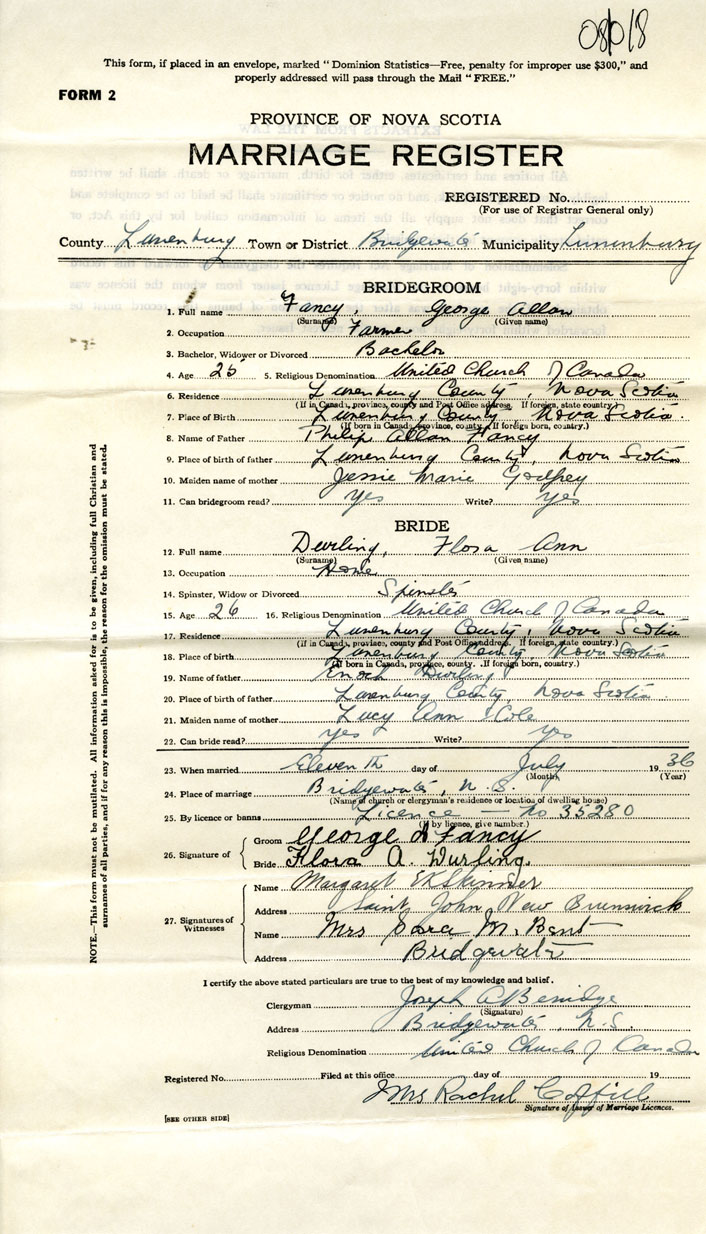 08018
This form, if placed in an envelope, marked "Dominion Statistics—Free, penalty for improper use $300," and
properly addressed will pass through the Mail "FREE."
FORM 2
PROVINCE OF NOVA SCOTIA
MARRIAGE REGISTER
REGISTERED No.
(For use of Registrar General only)
County Lunenburg Town or District Bridgewater Municipality Lunenburg
BRIDEGROOM
1. Full name Fancy, George Allan
(Surname) (Given name)
2. Occupation Farmer
3. Bachelor, Widower or Divorced Bachelor
4. Age 25 5. Religious Denomination United Church of Canada
6. Residence Lunenburg County, Nova Scotia
(If in Canada, province, county and Post Office address. If foreign, state country.)
7. Place of Birth Lunenburg County Nova Scotia.
(If born in Canada, province, county. If foreign born, country.)
8. Name of Father Philip Allan Fancy
9. Place of birth of father Lunenburg County, Nova Scotia
10. Maiden name of mother Jessie Marie Godfrey
11. Can bridegroom read? yes Write? yes
BRIDE
12. Full name Durling, Flora Ann
(Surname) (Given name)
13. Occupation Home
14. Spinster, Widow or Divorced Spinster
15. Age 26 16. Religious Denomination United Church of Canada
17. Residence Lunenburg County, Nova Scotia
(if in Canada, province, county and Post Office address. If foreign, state country.)
18. Place of birth Lunenburg County Nova Scotia
(If born in Canada, province, county. If foreign born, country.)
19. Name of father Enoch Durling
20. Place of birth of father Lunenburg County, Nova Scotia
21. Maiden name of mother Lucy Ann Cole
22. Can bride read? yes Write? yes
23. When married Eleventh day of July 1936
(Month) (Year)
24. Place of marriage Bridgewater, N.S.
(Name of church or clergyman's residence or location of dwelling house)
25. By licence or banns Licence — No 35280
(If by licence, give number.)
26. Signature of
Groom George A Fancy
Bride Flora A. Durling
27. Signatures of Witnesses
Name Margaret EK Skinner
Address Saint John New Brunswick
Name Mrs Sara M. Bent
Address Bridgewater
I certify the above stated particulars are true to the best of my knowledge and belief.
Clergyman Joseph A Berridge
(Signature)
Address Bridgewater, N.S.
Religious Denomination United Church of Canada
Registered No. Filed at this office day of 19
Mrs Rachel Coffill
Signature of Issuer of Marriage Licences.
[SEE OTHER SIDE]
NOTE.—This form must not be mutilated. All information asked for is to be given, including full Christian and
surnames of all parties, and if for any reason this is impossible, the reason for the omission must be stated.